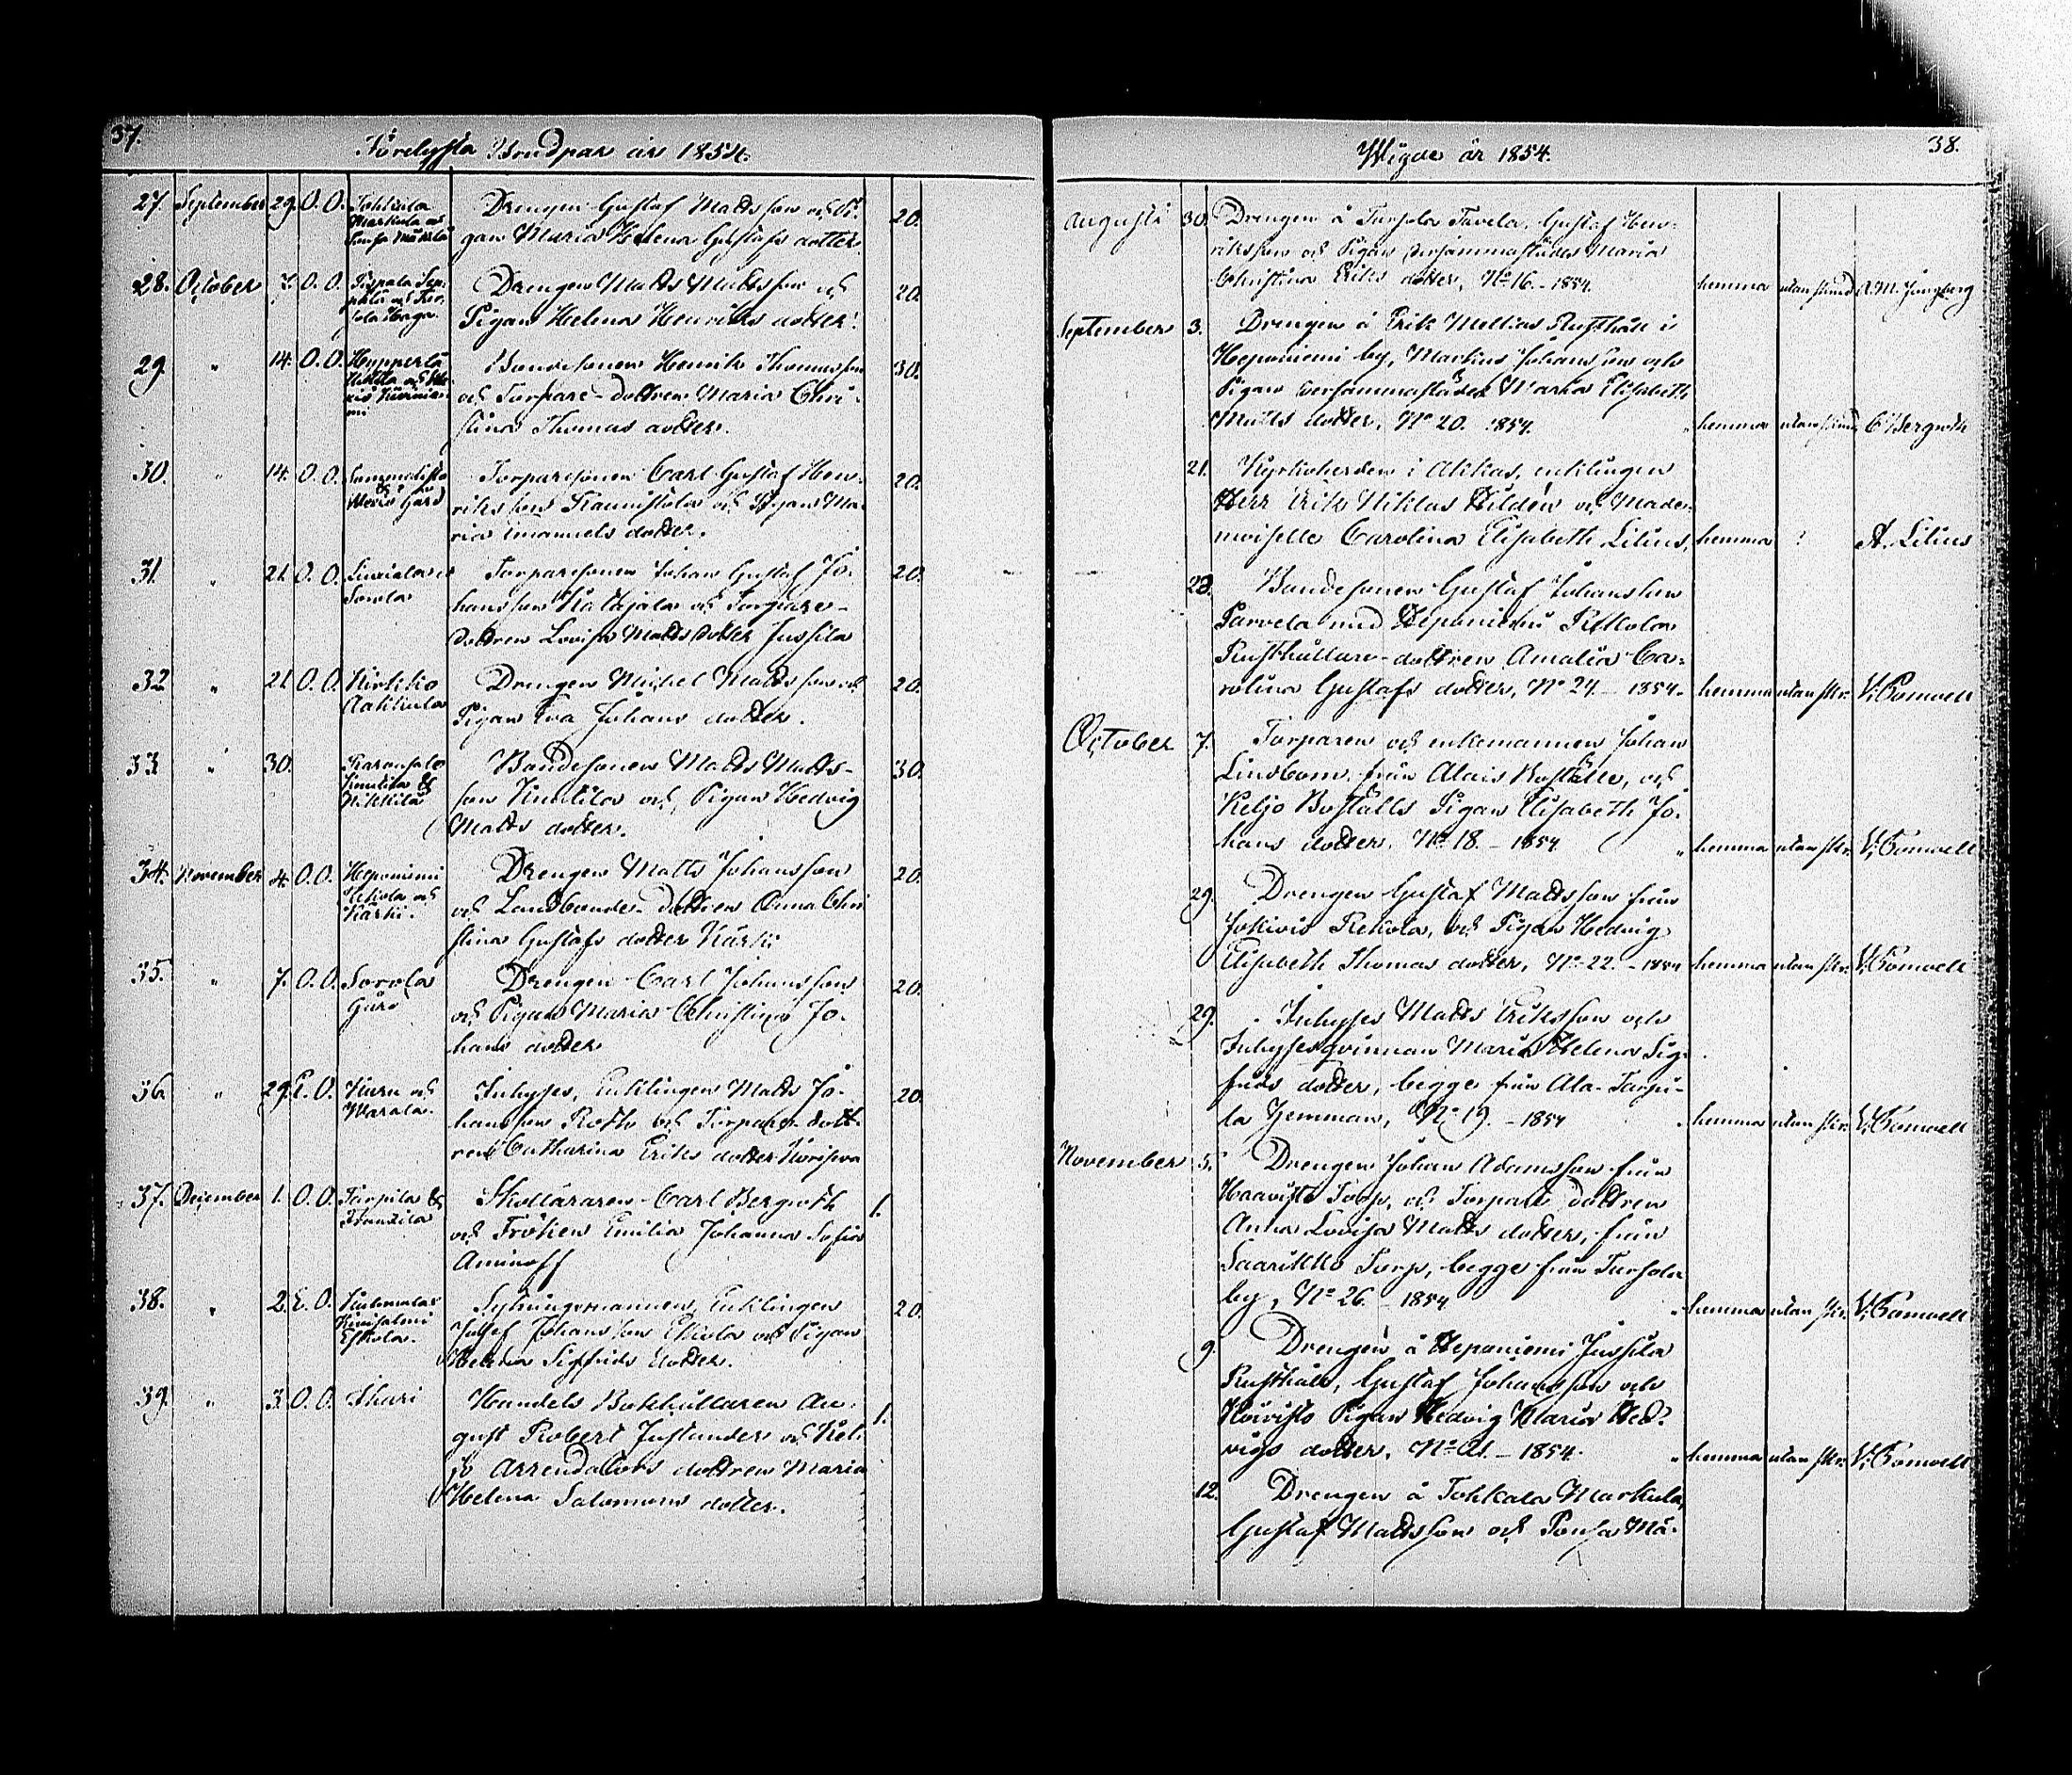 37.
Förelysta Brudpar år 1854.
27. September 29. O. O. Tokkala Drengen Gustaf Matts son och Pi- 20.
Markula och gan Maria Helena Gustafs dotter
Ponsa Mäkelä
28. October 7. O. O. Drengen Matts Matts son och 20.
Pigan Helena Henriks dotter.
29. " 14. O. O. Hypperlä Bondesonen Henrik Thomasson 30.
och Torpare-dottren Maria Chri-
stina Thomas dotter.
30. " 14. O. O. Torparesonen Carl Gustaf Hen- 20.
Gård riks son Kaunistola och Pigan Ma-
ria Emanuels dotter.
31. " 21. O. O. Torparesonen Johan Gustaf Jo- 20.
Sorola hans son Kalkjala och Torpare-
dottren Lovisa Matts dotter Jussila
32. " 21. O. O. Kirkko Drengen Michel Matts son och 20.
Aakkula Pigan Eva Johans dotter.
33. " 30. Bondesonen Matts Matts- 30.
Knutila & son Knutila och Pigan Hedvig
Nikkilä Matts dotter.
34. November 4. O. O. Heponiemi Drengen Matts Johansson 20.
och Landbonde-dottren Anna Chri
Kärki. stina Gustafs dotter Kärki
35. " 7. O. O. Sorola Drengen Carl Johansson 20.
Gård och Pigan Maria Christina Jo-
hans dotter
36. " 29. E. O. och Inhyses, Enklingen Matts Jo- 20.
Warala. hansson Roth och Torpare dott-
ren Catharina Eriks dotter
37. December 1. O. O. Tarpila & Skolläraren Carl Bergroth 1.
Frantila och Fröken Emilia Johanna Sofia
Aminoff
38. " 2. E. O. Enklingen 20.
Josef Johansson Eskola och Pigan
Eskola. Helena Sigfrids dotter.
39. " 3. O. O. Ihari Handels Bokhållaren Au- 1.
gust Robert Juslander och Kel-
jo Arrendators dottren Maria
Helena Salomons dotter.
38.
Wigde år 1854.
Augusti 30. Drengen å Tursola Tavela, Gustaf Hen-
riksson och Pigan dersammastädes Maria
Christina Eriks dotter, No 16.-1854. hemma utan skrud A. M. Ljungberg
September 3. Drengen å Erik Mellias Rusthåll i
Heponiemi by, Markus Johansson och
Pigan dersammastädes Maria Elisabeth
Matts dotter, No 20. 1854. hemma utan skrud C Bergroth
21. Kyrkoherden i Akkas, enklingen
Herr Erik Niklas Hildén och Made-
moiselle Carolina Elisabeth Lilius, hemma ? A. Lilius
28. Bondesonen Gustaf Johansson
Parvela med Heponiemi Pitkola
Rusthållare-dottren Amalia Ca-
rolina Gustafs dotter, No 24 - 1854. hemma utan skr. V. Bonwell
October 7. Torparen och enkemannen Johan
Lindbom, från Alais Boställe, och
Keljo Boställs Pigan Elisabeth Jo-
hans dotter. No 18. - 1854 " hemma utan skr. V. Bonwell
29. Drengen Gustaf Mattsson från
Jokivis Rekola, och Pigan Hedvig
Elisabeth Thomas dotter, No 22. - 1854 hemma utan skr. V. Bonwell
29. Inhyses Matts Eriksson och
Inhysesqvinnan Maria Helena Sig-
frids dotter, begge från Ala-Tarpi-
la Hemman, No 19. - 1854 hemma utan skr. V. Bonwell
November 5. Drengen Johan Adamsson från
Haavisto Torp, och Torpare dottren
Anna Lovisa Matts dotter, från
Saarikko Torp, begge från Tursola
by, No 26. - 1854 " hemma utan skr. V. Bonwell
9. Drengen å Heponiemi Jussila
Rusthåll, Gustaf Johansson och
Koivisto Pigan Hedvig Maria Hed-
vigs dotter, No 21. - 1854. " hemma utan skr. V. Bonwell
12. Drengen å Tokkala Markula,
Gustaf Mattsson och Ponsa Mä-